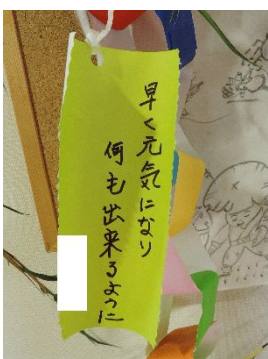 早く元気になり
何も出来るように